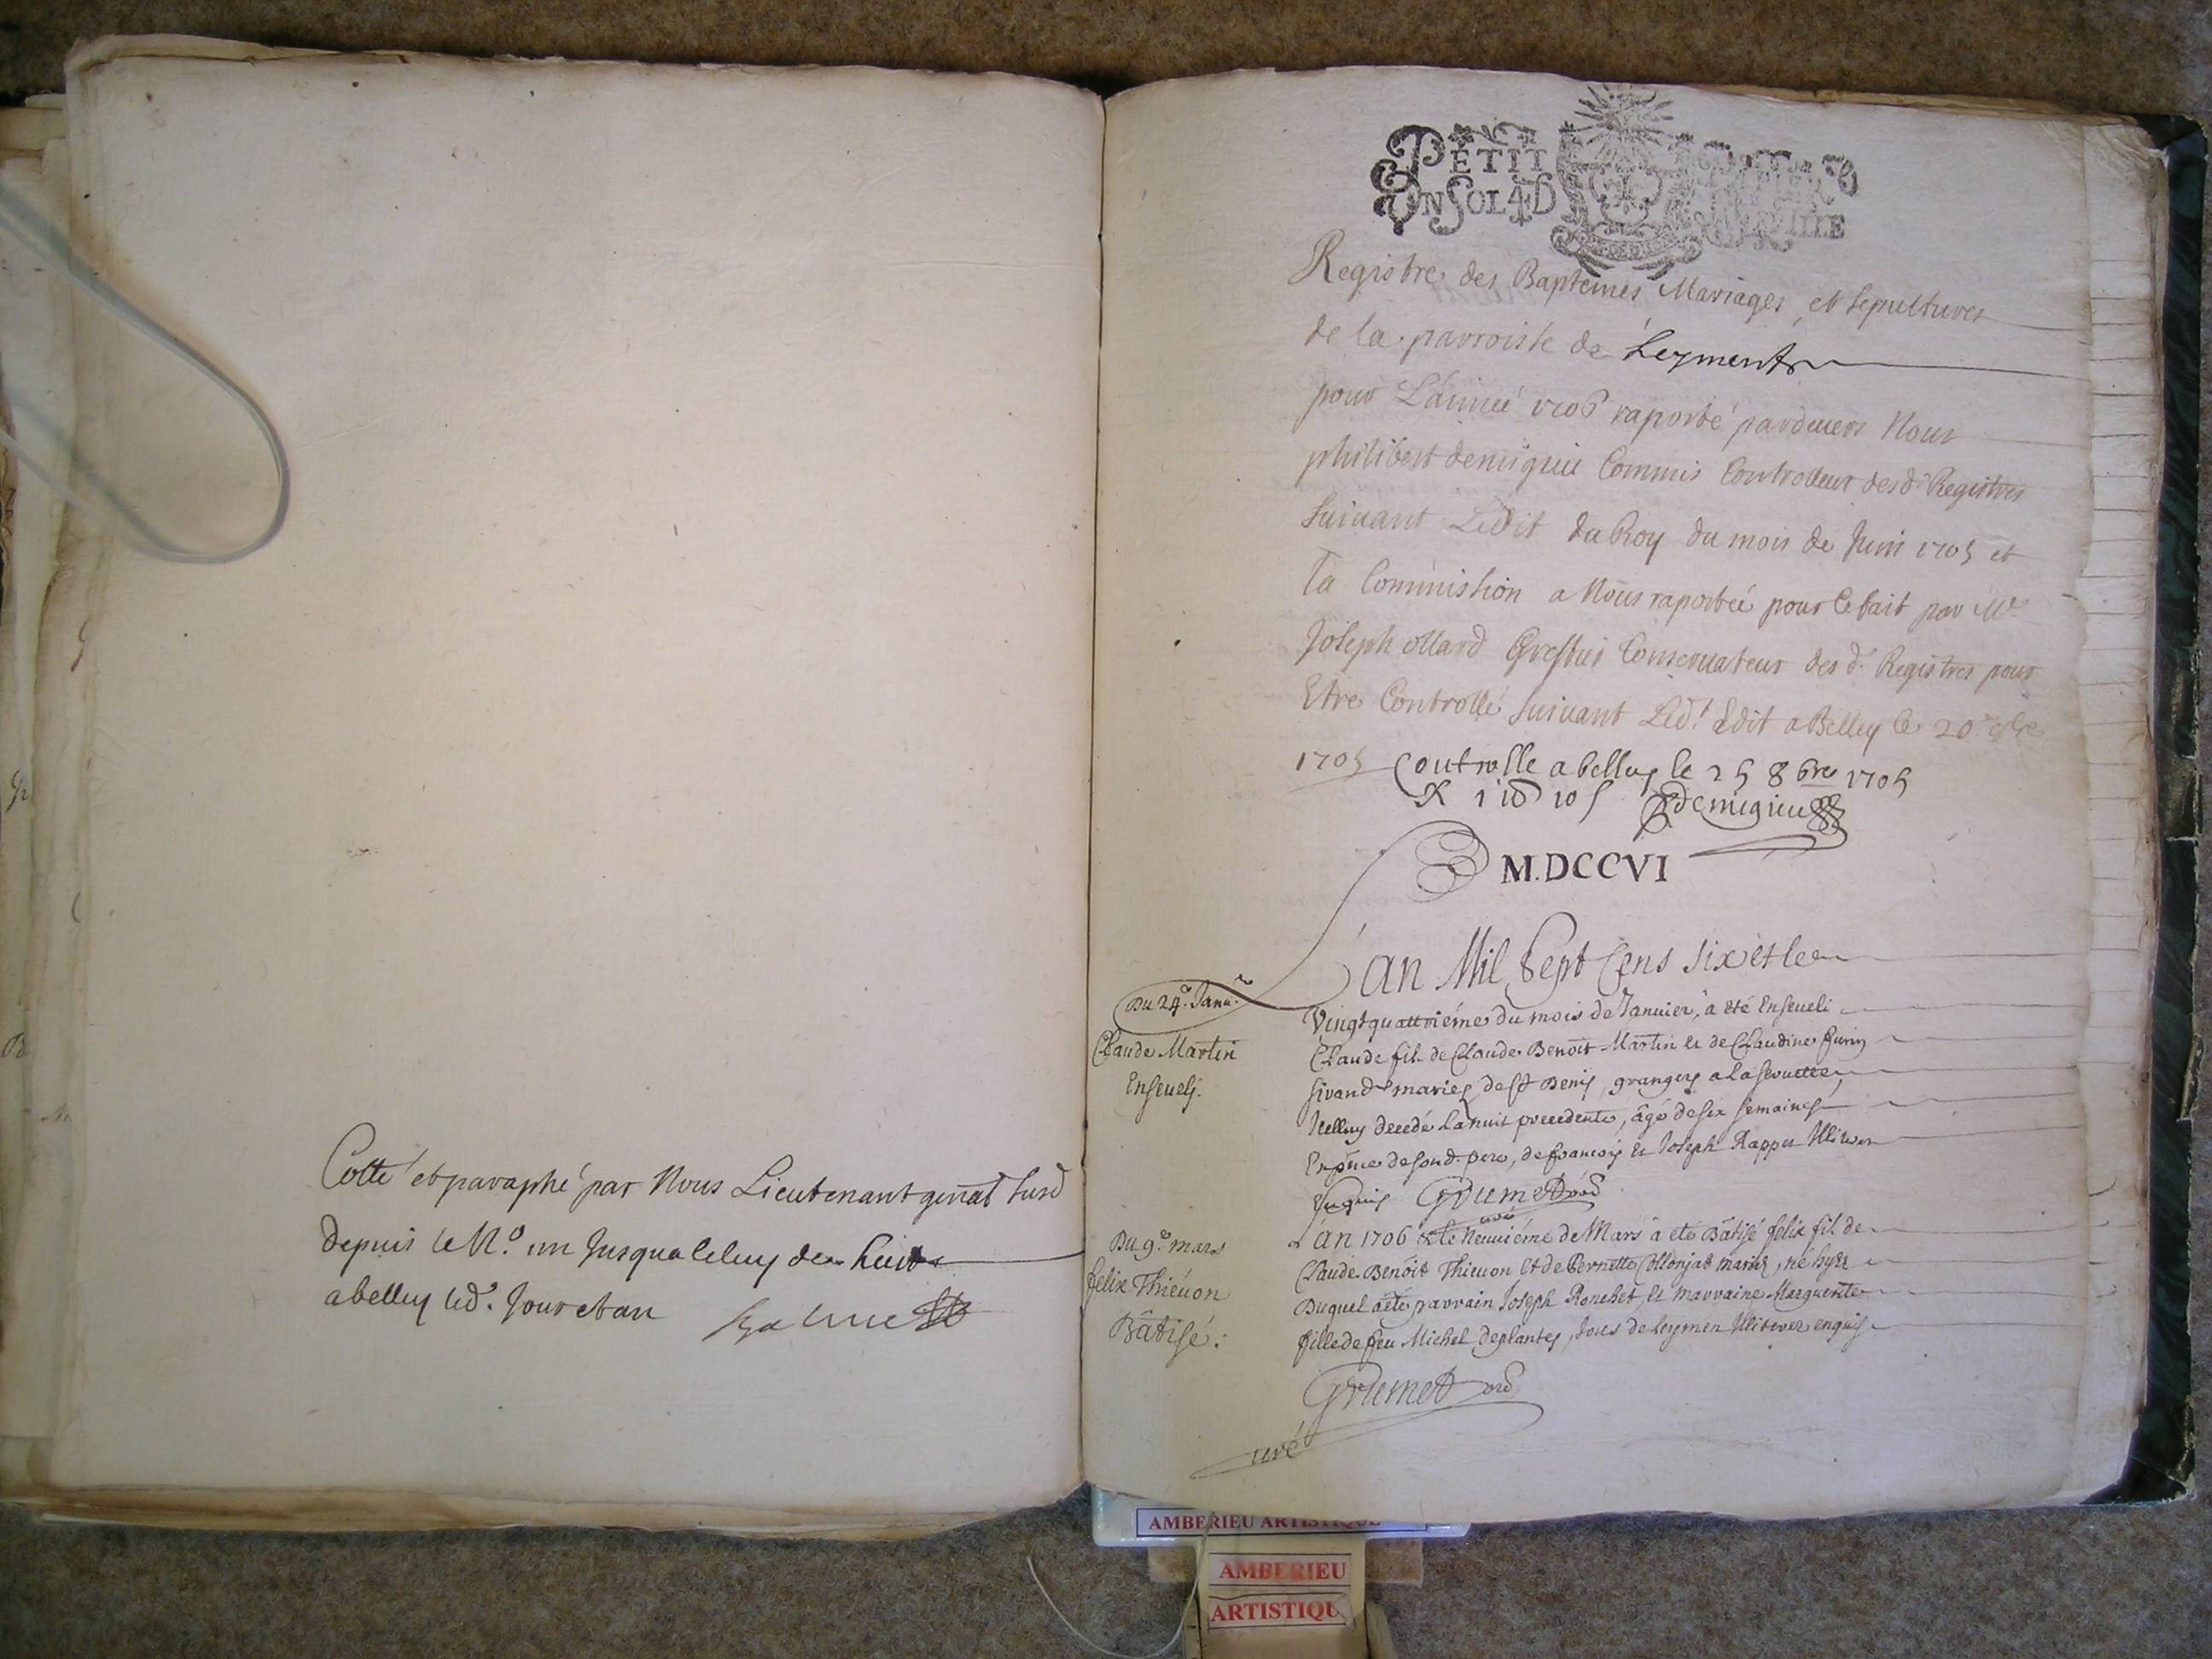 Cotté et paraphé par Nous Lieutenant gñal susd
depuis le N.º un Jusqua Celuy de huit
abelley led. Jour et an
PETIT PAPIER
UN SOL 4 D LA FEUILLE
Registre des Baptemes Mariages, et sepultures
de la parroisse de Leyment
pour L'année 1706 raporté pardevers Nous
philibert demigieu Commis Controlleur desd. Registres
suivant L'edit du Roy du mois de Juin 1705 et
la Commission a Nous raportée pour Ce fait par Mᵉ
Joseph ollard Greffier Conservateur des d. Registres pour
Etre Controllé suivant Led.t Edit a Belley le 20
1705 Controlle a belley le 25 8bre 1705
R 1 10 s demigieu
M.DCCVI
L'an Mil Sept Cens Six et le
Du 24.e Janu.r
Vingt quattriéme du mois de Ianuier, a eté Enseueli
Claude Martin
Claude fils de Claude Benoit Martin et de Claudine
Enseueli.
mariez de St Denis, grangers a la
decedé La nuit precedente, âgé de six semaines
En p̃nce de sond. pere, de francois et Joseph Rappet Illiteres
Enquis Grumet curé
Du 9.e mars
L'an 1706 & le Neuuiéme de Mars a eté Bâtisé felix fils de
felix Thieuon
Claude Benoit Thieuon et de Pernette Collonjat mariez, né hyer
Bâtisé:
Duquel a eté parrain Joseph Ronchet, et marraine Marguerite
fille de feu Michel deplantes, tous de Leymen Illiteres enquis
Grumet
curé
AMBERIEU ARTISTIQUE
AMBERIEU
ARTISTIQU